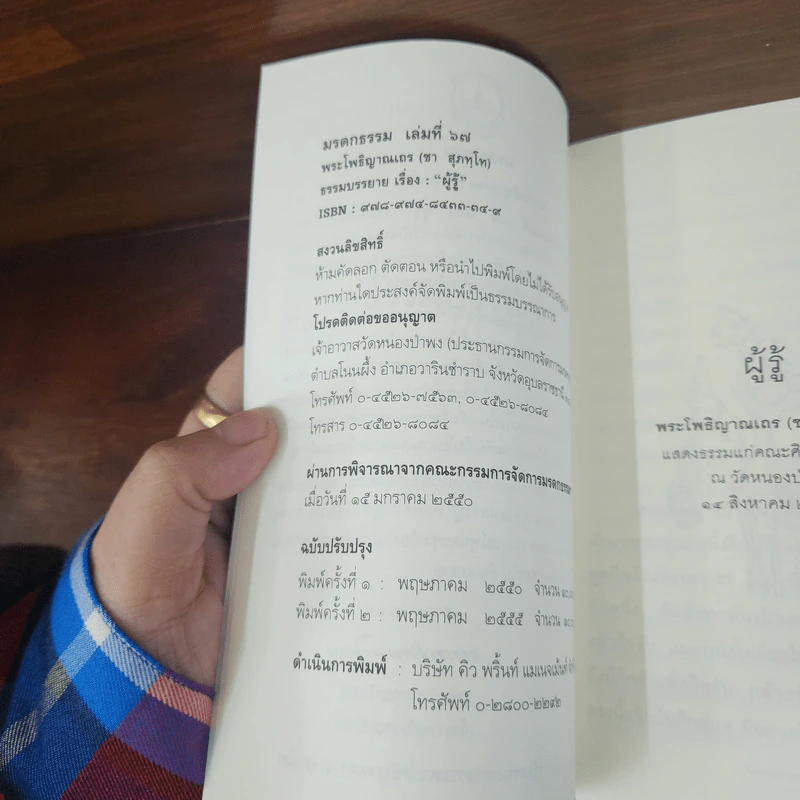 มรดกธรรม เล่มที่ ๖๗
พระโพธิญาณเถร (ชา สุภทฺโท)
ธรรมบรรยาย เรื่อง : “ผู้รู้”
ISBN : ๙๗๘-๙๗๔-๘๔๓๓-๓๔-๙
สงวนลิขสิทธิ์
ห้ามคัดลอก ตัดตอน หรือนำไปพิมพ์โดยไม่ได้รับ
หากท่านใดประสงค์จัดพิมพ์เป็นธรรมบรรณาการ
โปรดติดต่อขออนุญาต
เจ้าอาวาสวัดหนองป่าพง (ประธานกรรมการจัดการ
ตำบลโนนผึ้ง อำเภอวารินชำราบ จังหวัดอุบลราชธานี
โทรศัพท์ ๐-๔๕๒๖-๗๕๖๓, ๐-๔๕๒๖-๘๐๘๔
โทรสาร ๐-๔๕๒๖-๘๐๘๔
ผ่านการพิจารณาจากคณะกรรมการจัดการมรดกธรรม
เมื่อวันที่ ๑๕ มกราคม ๒๕๕๐
ฉบับปรับปรุง
พิมพ์ครั้งที่ ๑ : พฤษภาคม ๒๕๕๐ จำนวน
พิมพ์ครั้งที่ ๒ : พฤษภาคม ๒๕๕๕ จำนวน
ดำเนินการพิมพ์ : บริษัท คิว พริ้นท์ แมเนจเม้นท์
โทรศัพท์ ๐-๒๘๐๐-๒๒๙๒
ผู้รู้
พระโพธิญาณเถร (ชา
แสดงธรรมแก่คณะศิ
ณ วัดหนองป่
๑๔ สิงหาคม